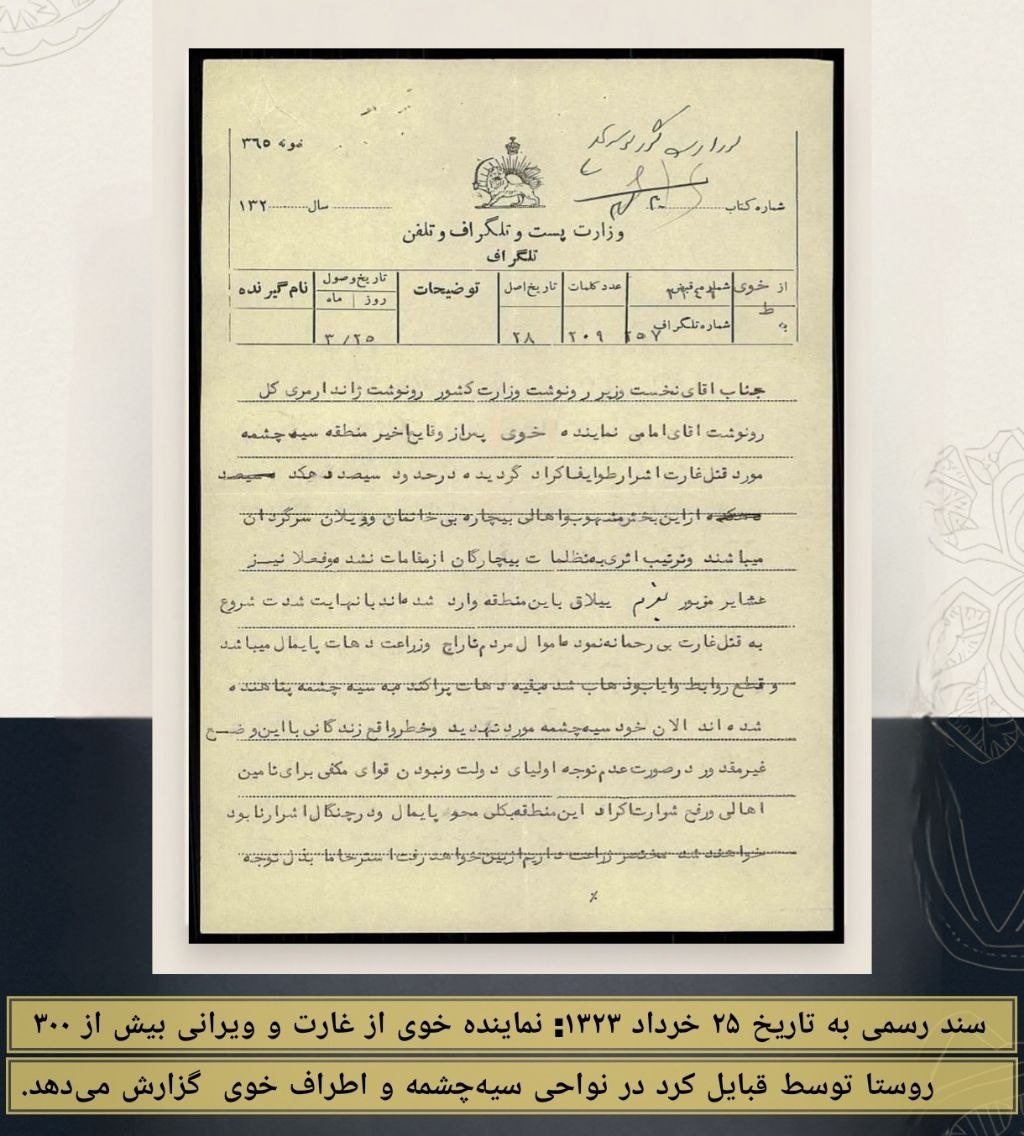 نمونه ۳۶۵
شماره کتاب
سال ۱۳۲
وزارت پست و تلگراف و تلفن
تلگراف
از خوی شماره قبض عدد کلمات تاریخ اصل توضیحات تاریخ وصول نام گیرنده
روز ماه
به ط شماره تلگراف ۲۵۷ ۲۰۹ ۲۸ ۳/۲۵
جناب اقای نخست وزیر رونوشت وزارت کشور رونوشت ژاندارمری کل
رونوشت اقای امامی نماینده خوی پس از وقایع اخیر منطقه سیه چشمه
مورد قتل غارت اشرار طوایف اکراد گردیده در حدود سیصد دهکده
از این بخش منهوب و اهالی بیچاره بی خانمان وویلان سرگردان
میباشند وترتیب اثری به تظلمات بیچارگان از مقامات نشد موفعلا نیز
عشایر مزبور بعزم ییلاق باین منطقه وارد شده اند با نهایت شدت شروع
به قتل غارت بی رحمانه نموده اموال مردم تاراج وزراعت دهات پایمال میباشد
و قطع روابط وایاب وذهاب شد مبقیه دهات پراکنده به سیه چشمه پناهنده
شده اند الان خود سیه چشمه مورد تهدید وخطر واقع زندگانی با این وضع
غیرمقدور درصورت عدم توجه اولیای دولت ونبودن قوای مکفی برای تامین
اهالی ورفع شرارت اکراد این منطقه بکلی محو پایمال ودرچنگال اشرار نابود
خواهند شد مختصر زراعت داریم ازبین خواهد رفت استرحاما بذل توجه
٪
سند رسمی به تاریخ ۲۵ خرداد ۱۳۲۳: نماینده خوی از غارت و ویرانی بیش از ۳۰۰
روستا توسط قبایل کرد در نواحی سیه‌چشمه و اطراف خوی گزارش می‌دهد.